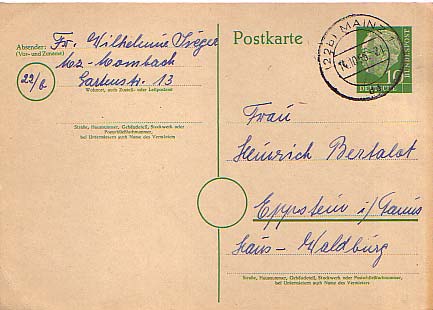 Absender:
(Vor- und Zuname)
Fr. Wilhelmine
Mz-Mombach
Gartenstr. 13
22/b
Wohnort, auch Zustell- oder Leitpostamt
Straße, Hausnummer, Gebäudeteil, Stockwerk oder
Postschließfachnummer,
bei Untermietern auch Name des Vermieters
Postkarte
(22b) MAINZ
14.10.
10
DEUTSCHE
BUNDESPOST
Frau
Heinrich Bertalot
Eppstein i/Taunus
Haus-Waldburg
Straße, Hausnummer, Gebäudeteil, Stockwerk oder Postschließfachnummer,
bei Untermietern auch Name des Vermieters